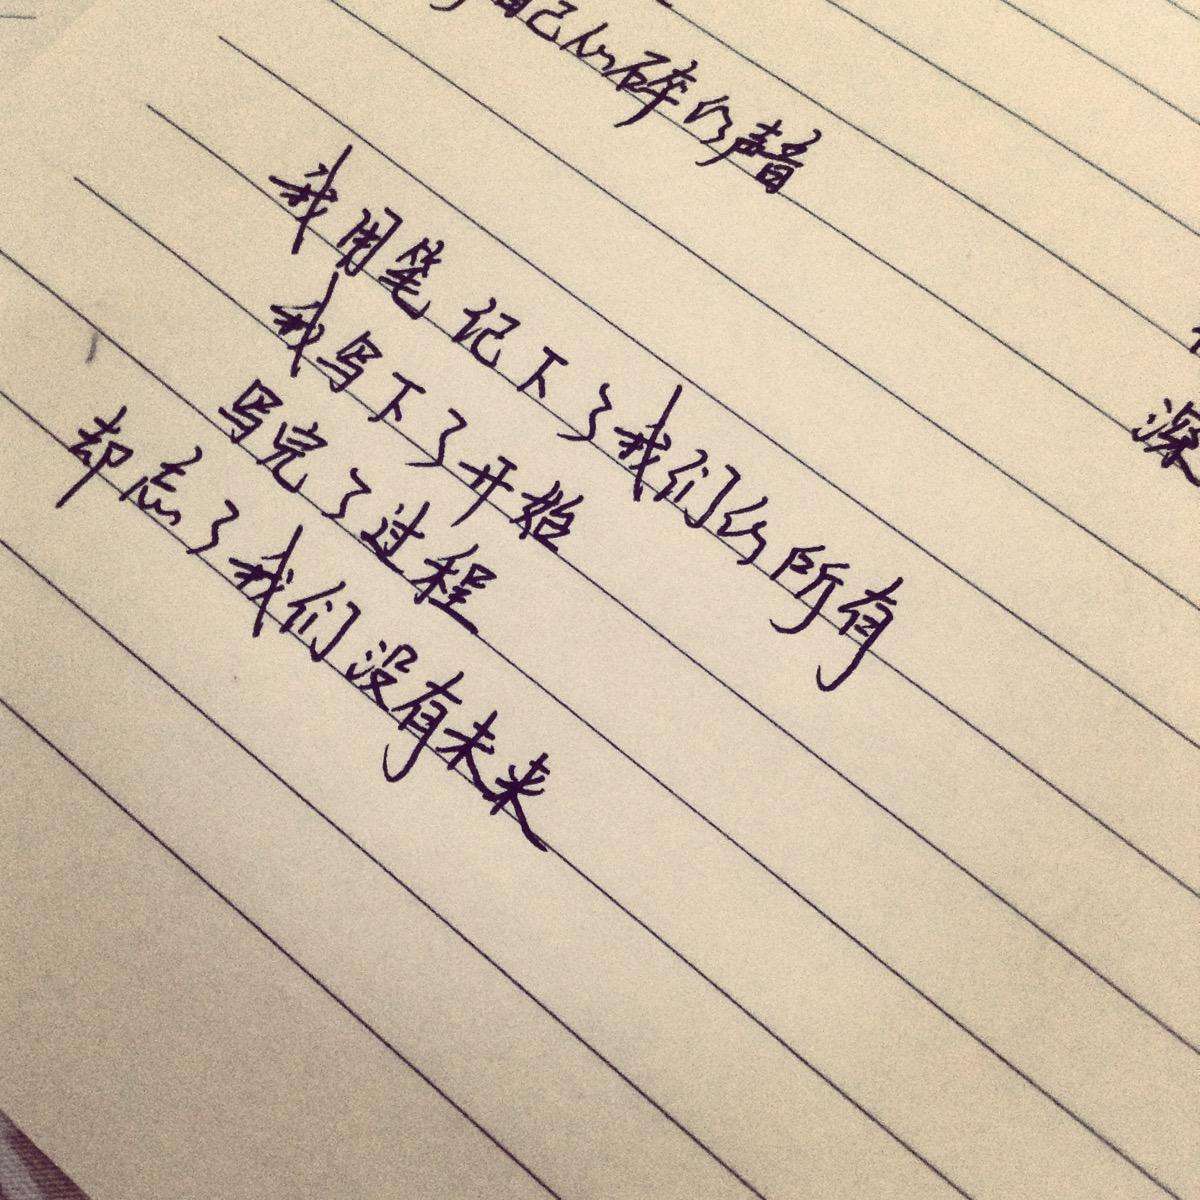 自己心碎的声音
我用笔记下了我们的所有
我写下了开始
写完了过程
却忘了我们没有未来
深